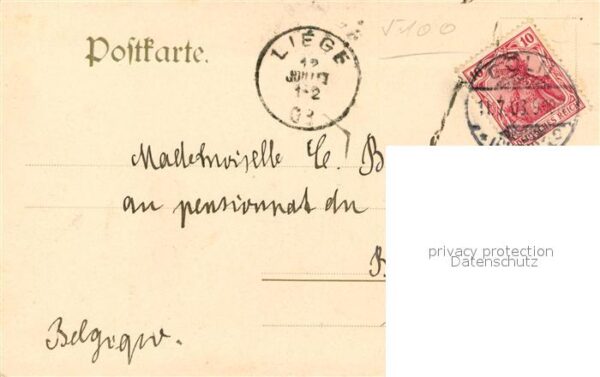 Postkarte.
LIÉGE
12
JUILLET
1-2
03
5100
10
CÖLN
11.7.03
REICH
Mademoiselle C. B
au pensionnat du
B
Belgique.
privacy protection
Datenschutz